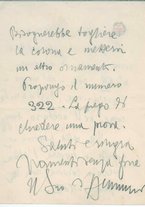 Bisognerebbe togliere
la corona e mettervi
un altro ornamento.
Propongo il numero
322. La prego di
chiedere una prova.
Saluti e auguri
senza fine
Il Suo